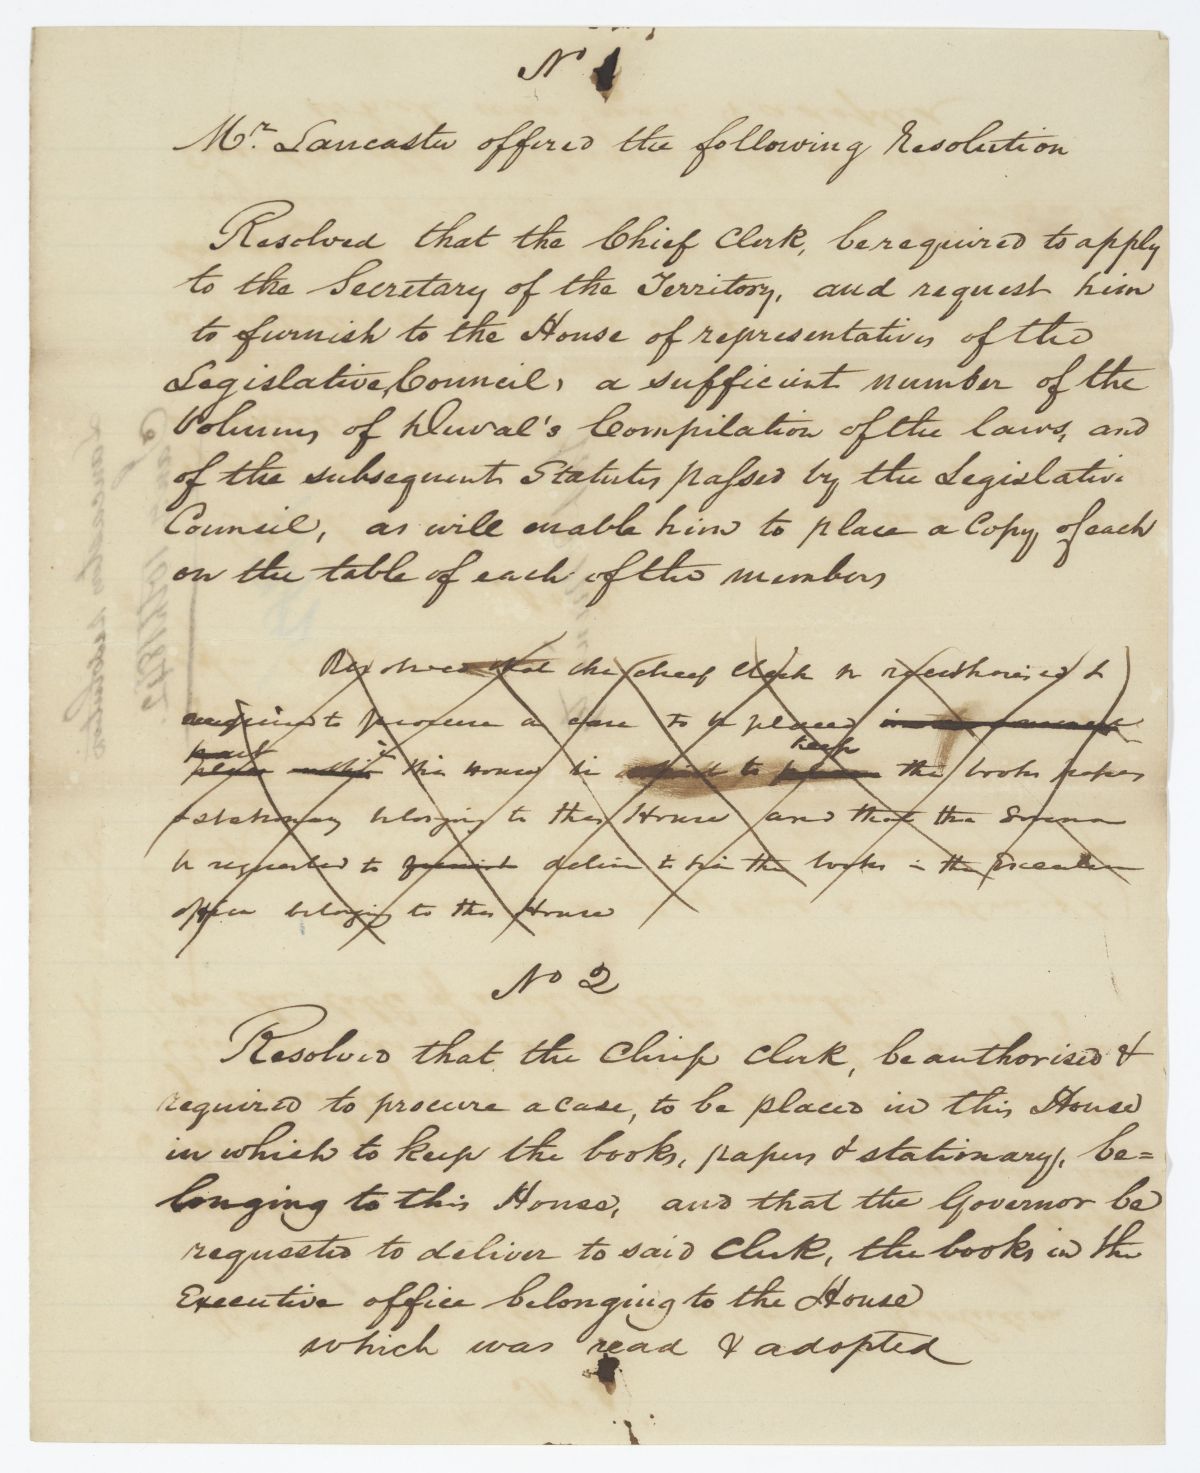 No 1
Mr. Lancaster offered the following Resolution
Resolved that the Chief Clerk, be required to apply
to the Secretary of the Territory, and request him
to furnish to the House of representatives of the
Legislative Council, a sufficient number of the
Volums of Duval's Compilation of the laws, and
of the subsequent Statutes passed by the Legislative
Council, as will enable him to place a Copy of each
on the table of each of the members
Resolved that the cheif Clerk be authorised &
required to procure a case to be placed
keep
this House in to the books papers
& stationary belonging to this House and that the Governor
be requested to furnish deliver to him the books in the Executive
office belonging to this House
No 2
Resolved that the Chief Clerk, be authorised &
required to procure a case, to be placed in this House
in which to keep the books, papers & stationary, be=
longing to this House, and that the Governor be
requested to deliver to said Clerk, the books in the
Executive office belonging to the House
which was read & adopted